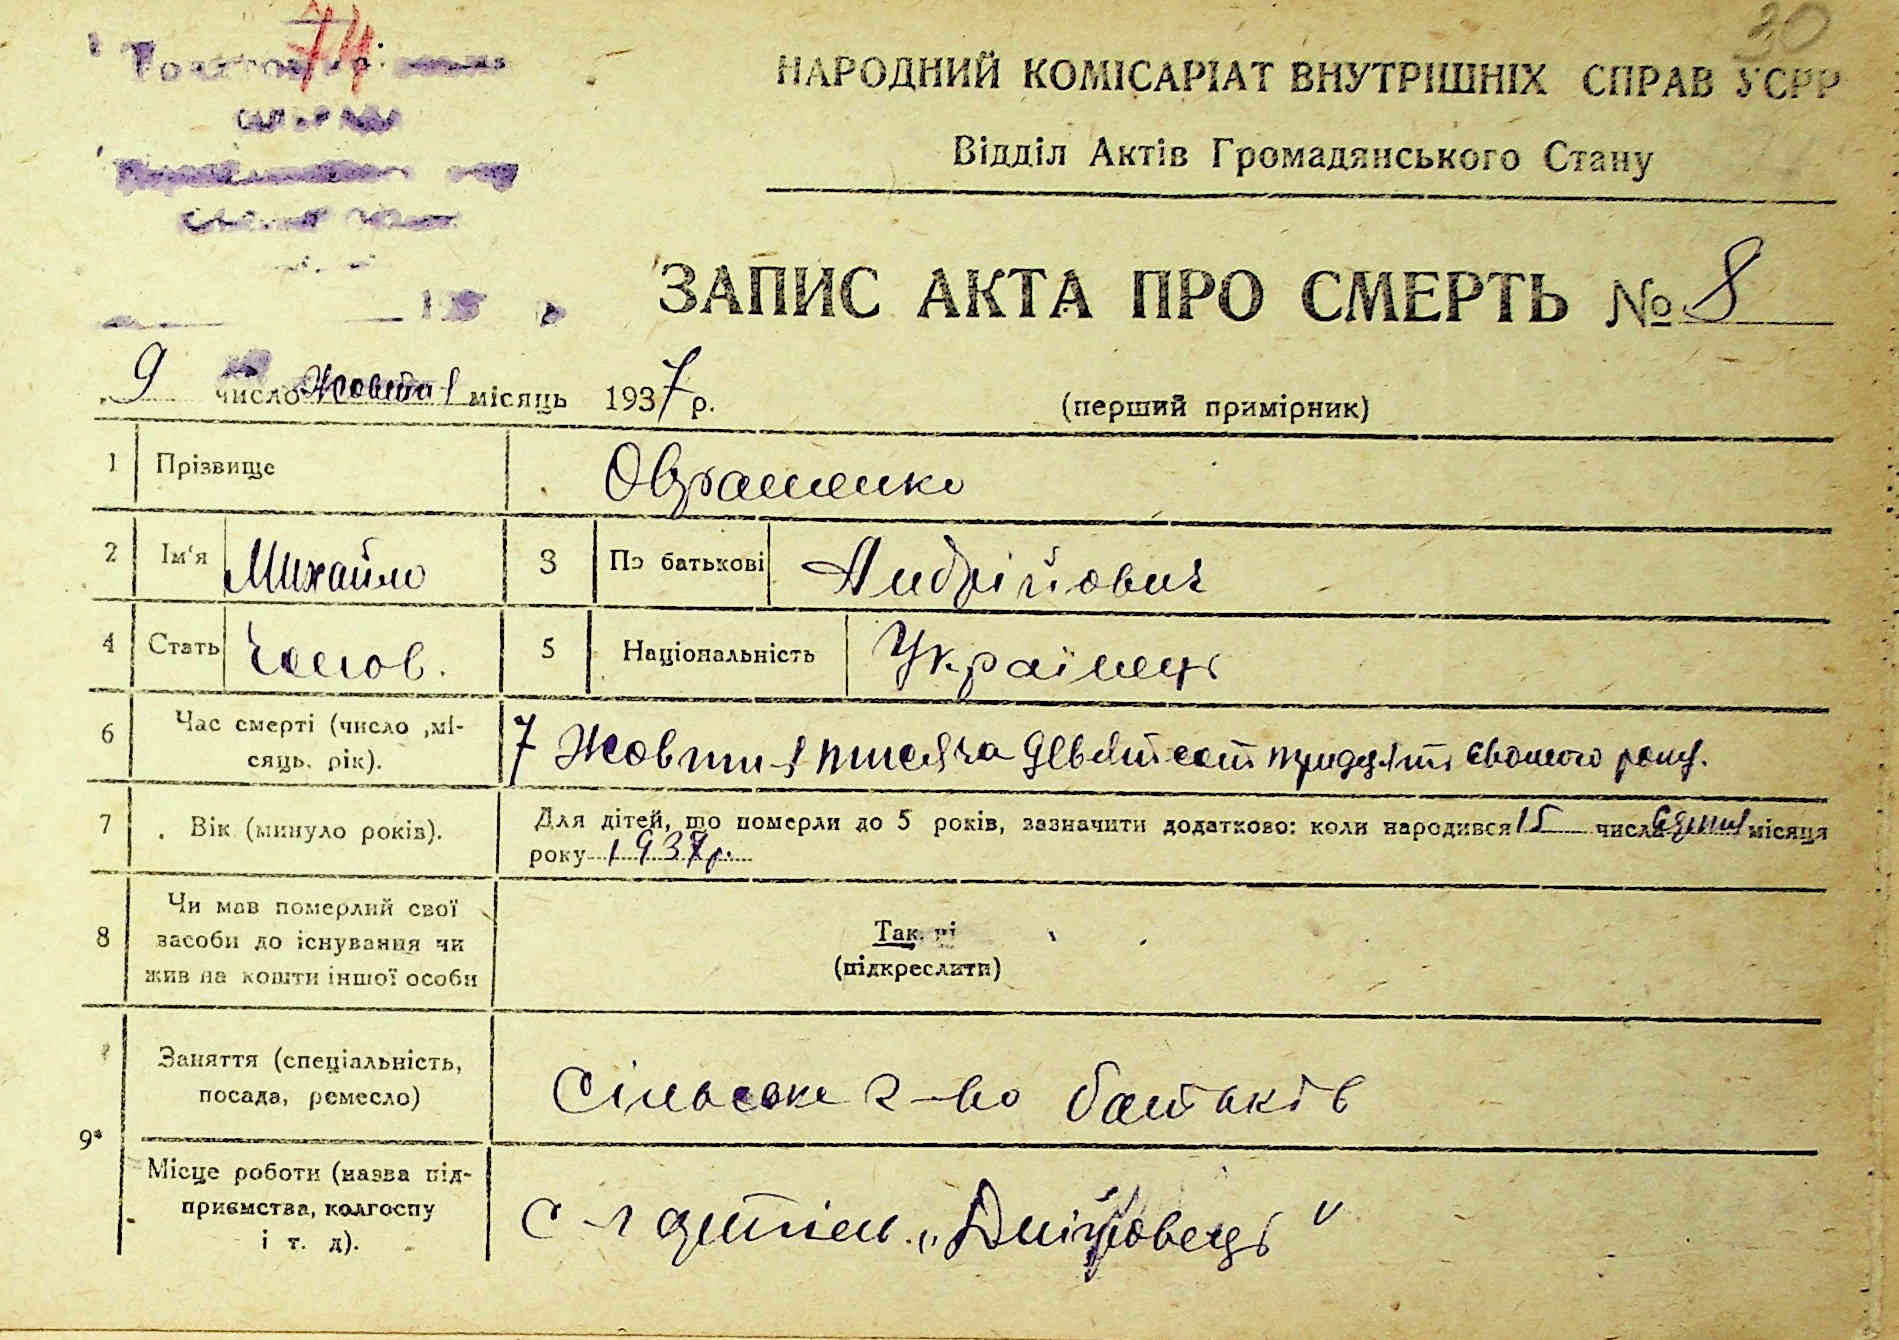 74
30
НАРОДНИЙ КОМІСАРІАТ ВНУТРІШНІХ СПРАВ УСРР
Відділ Актів Громадянського Стану
ЗАПИС АКТА ПРО СМЕРТЬ № 8
9 число Жовтня місяць 1937 р.
(перший примірник)
1 Прізвище
2 Ім'я Михайло 3 По батькові Андрійович
4 Стать Чолов. 5 Національність Українець
6 Час смерті (число ,мі-
сяць. рік).
7 Жовтня тисяча девятсот тридцять сьомого року.
7 Вік (минуло років).
Для дітей, що померли до 5 років, зазначити додатково: коли народився 15 числа Серпня місяця
року 1937р.
8 Чи мав померлий свої
засоби до існування чи
жив на кошти іншої особи
Так, ні
(підкреслити)
9*
Заняття (спеціальність,
посада, ремесло)
Сільське г-во батьків
Місце роботи (назва під-
приємства, колгоспу
і т. д).
с-г артіль „Дніпровець"